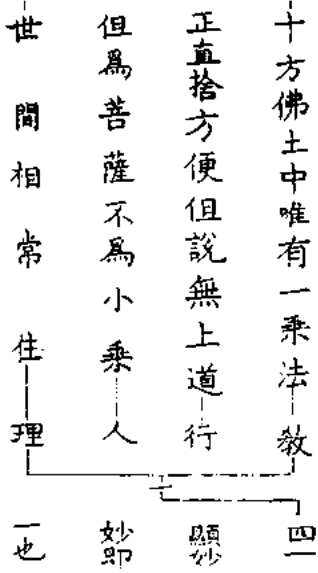 十方佛土中唯有一乘法 教
正直捨方便但說無上道 行
但爲菩薩不爲小乘 人
世間相常住 理
四一
顯妙
妙即
一也